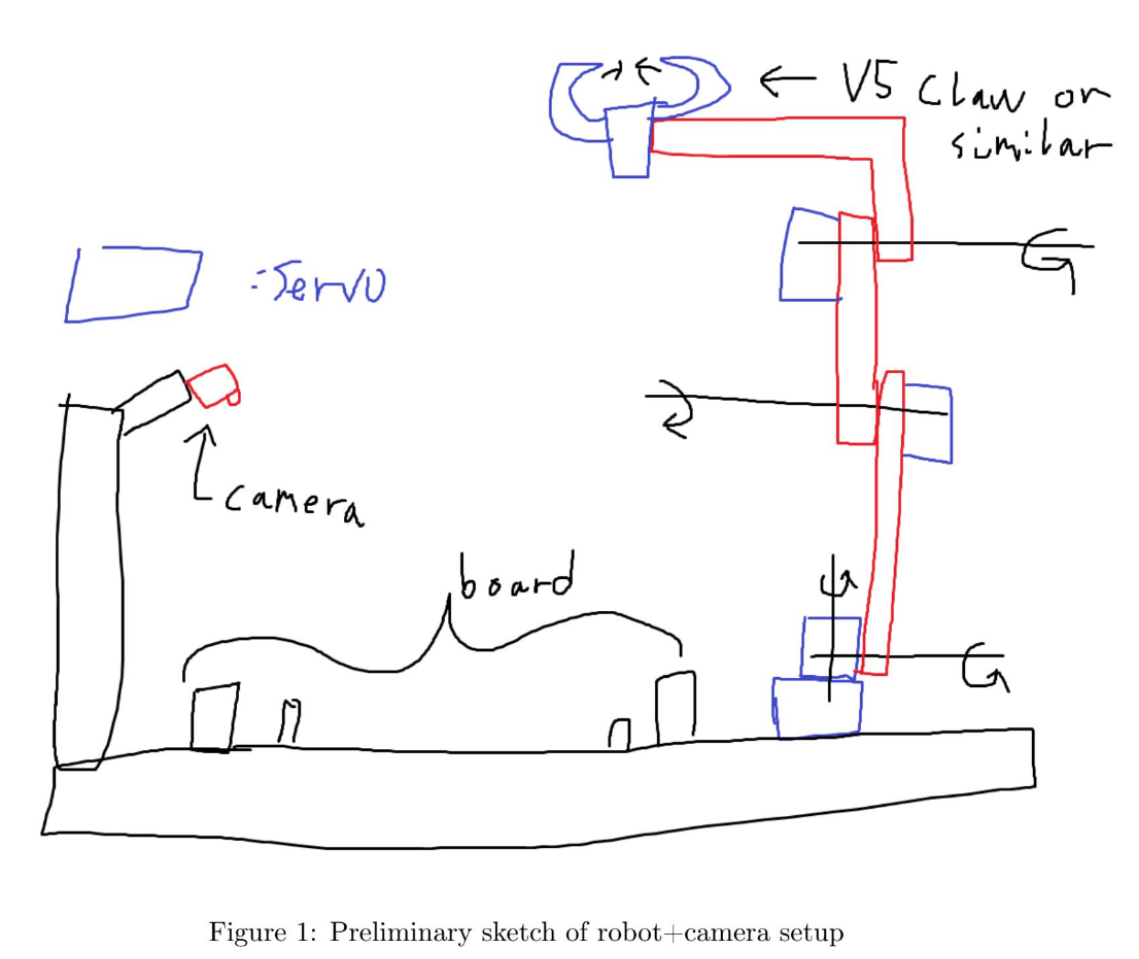 ← V5 Claw or
similar
:Servo
camera
board
Figure 1: Preliminary sketch of robot+camera setup